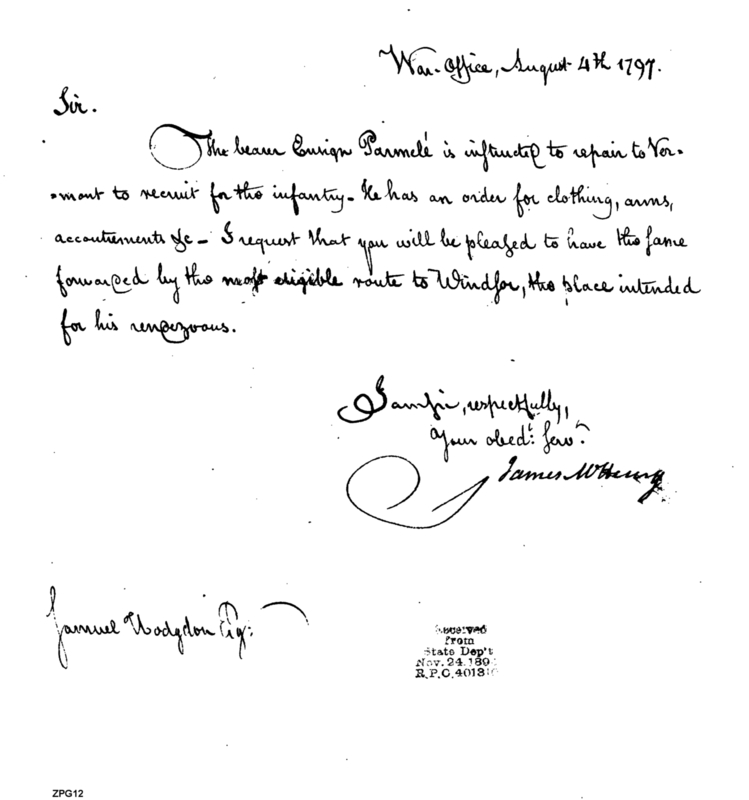 War-Office, August 4th 1797.
Sir.
The bearer Ensign Parmelé is instructed to repair to Ver-
-mont to recruit for the infantry - He has an order for clothing, arms,
accoutrements &c - I request that you will be pleased to have the same
forwarded by the most eligible route to Windsor, the place intended
for his rendezvous.
I am sir, respectfully,
Your obedt: servt.
James McHenry
Samuel Hodgdon Esq:
Received
from
State Dep't
Nov. 24. 189
R.P.C. 4013
ZPG12